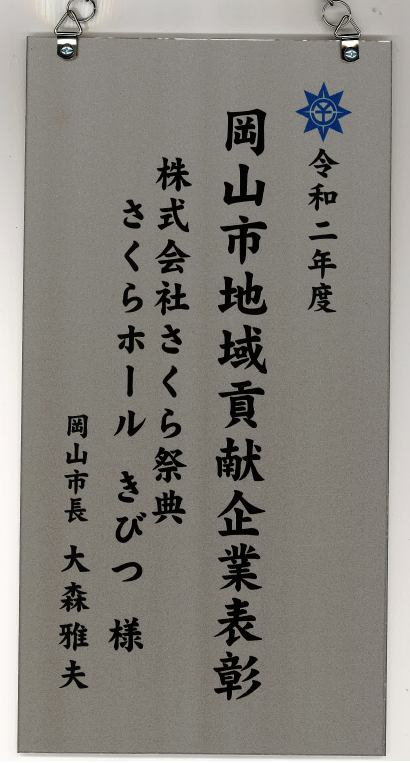 令和二年度
岡山市地域貢献企業表彰
株式会社さくら祭典
さくらホール きびつ 様
岡山市長 大森雅夫